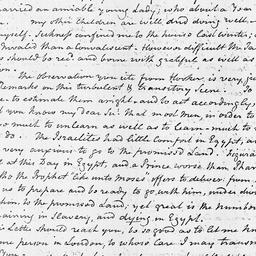 married an amiable young Lady; who about a Year
my other Children are well, and doing well.
myself. Sickness confined me to the house last Winter;
Invalid than a Convalescent. However difficult the
should be red. and borne with grateful as well as
The observation you cite from is very
Remarks on this turbulent & transitory Scene. To
to estimate them aright and to act accordingly,
you know my dear Sir! that most men, in order to
so much to unlearn, as well as to learn—much to
do. The Israelites had little comfort in Egypt,
very anxious to go to the promised Land.
at this Day in Egypt, and a Prince worse than
tho' the Prophet like unto Moses offers to deliver from
us to prepare and be ready to go with him, under
him, to the promised Land; yet great is the number
in Slavery, and dying in Egypt.
Letter should reach you, be so good as to let me
some person in London, to whose Care I may